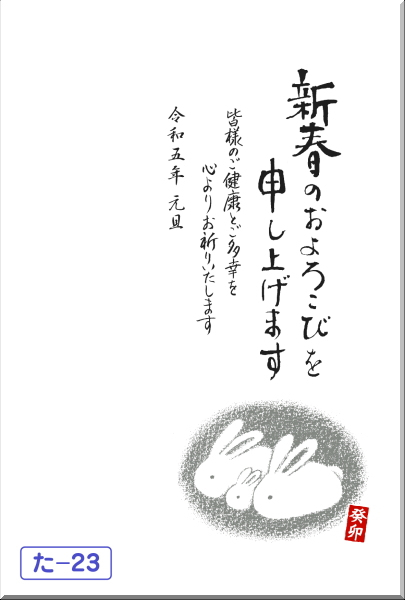 新春のおよろこびを
申し上げます
皆様のご健康とご多幸を
心よりお祈りいたします
令和五年 元旦
癸卯
た-23